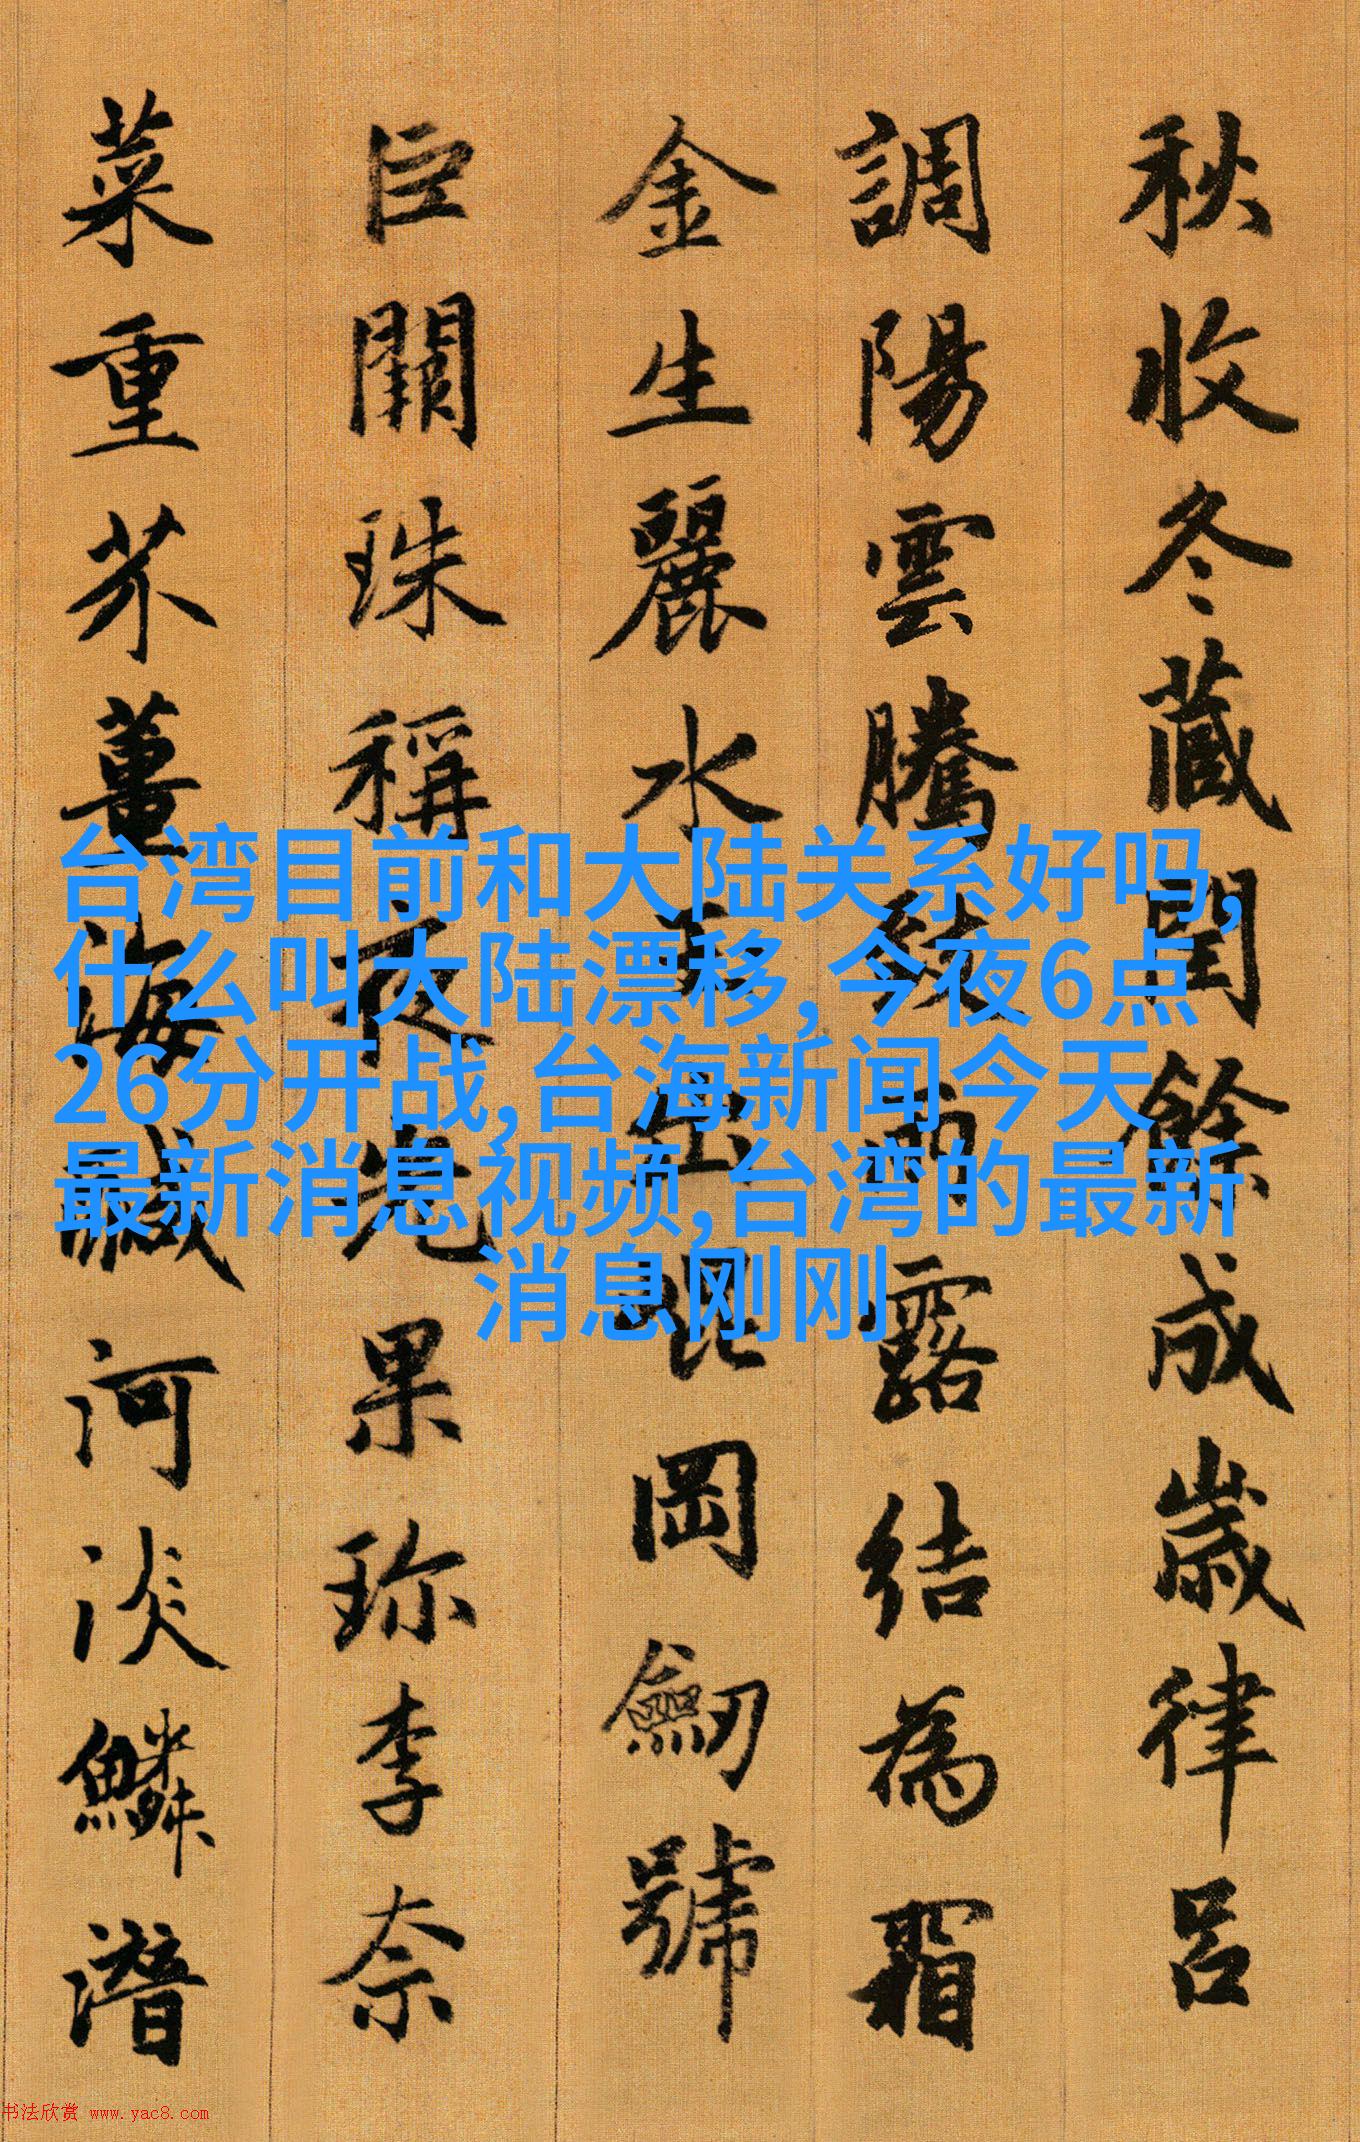 秋收冬藏閏餘成歲律呂
調陽雲騰致雨露結為霜
金生麗水玉出崐岡劒號
巨闕珠稱夜光果珎李奈
菜重芥薑海醎河淡鱗潛
台湾目前和大陆关系好吗,
什么叫大陆漂移,今夜6点
26分开战,台海新闻今天
最新消息视频,台湾的最新
消息刚刚
书法欣赏 www.yac8.com